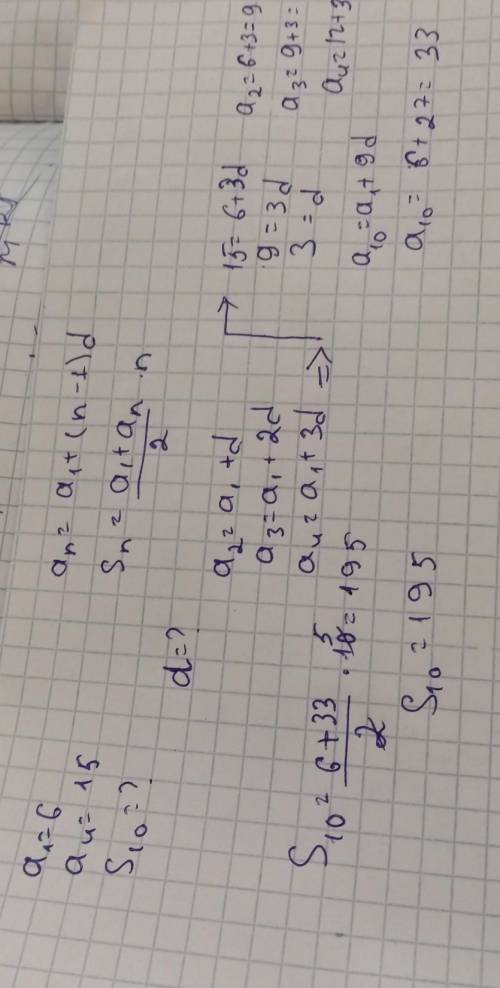 a₁=6
a₄=15
S₁₀=?
aₙ= a₁+(n-1)d
Sₙ= (a₁+aₙ)/2 ·n
d=?
a₂=a₁+d
a₃=a₁+2d
a₄=a₁+3d =>
15=6+3d
9=3d
3=d
a₂=6+3=9
a₃=9+3=
a₄=12+3
a₁₀=a₁+9d
a₁₀= 6+27= 33
S₁₀= (6+33)/2 ·10 5= 195
S₁₀=195